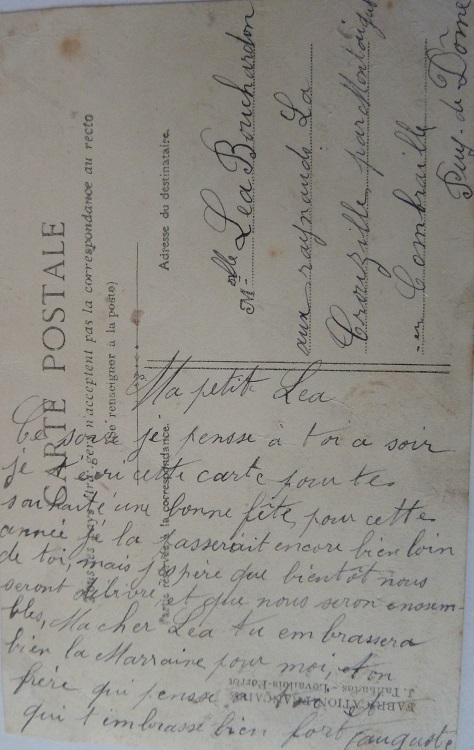 CARTE POSTALE
Tous les pays étrangers n'acceptent pas la correspondance au recto
(Se renseigner à la poste)
Partie réservée à la correspondance.
Adresse du destinataire.
Mlle Lea Bouchardon
aux raynauds La
Crouzille par Montaigut
en Combraille
Puy-de Dome
Ma petit Lea
Ce soire je pensse à toi a soir
je t'écri cette carte pour te
souhaité une bonne fête pour cette
année je la passerait encore bien loin
de toi, mais j'spère que bientôt nous
seront délivré et que nous seron enssem-
bles, Ma cher Lea tu embrassera
bien la Marraine pour moi, ton
frère qui pensse à toi et
qui t'embrasse bien fort auguste
FABRICATION FRANÇAISE